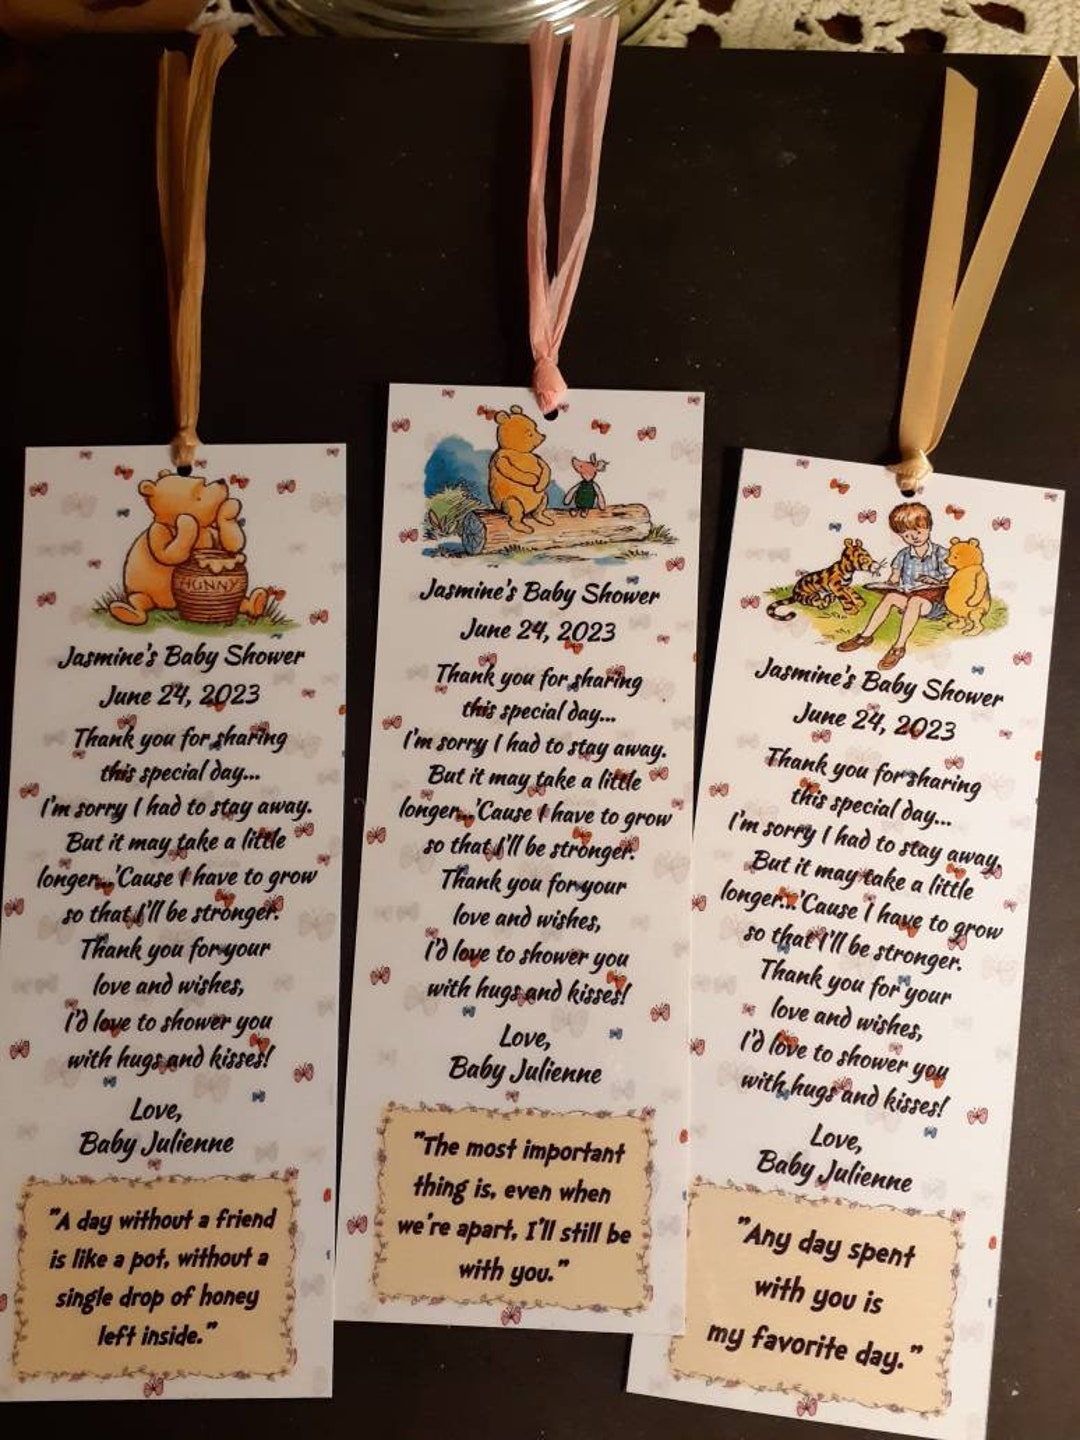 HUNNY
Jasmine's Baby Shower
June 24, 2023
Thank you for sharing
this special day...
I'm sorry I had to stay away.
But it may take a little
longer...'Cause I have to grow
so that I'll be stronger.
Thank you for your
love and wishes,
I'd love to shower you
with hugs and kisses!
Love,
Baby Julienne
"A day without a friend
is like a pot, without a
single drop of honey
left inside."
Jasmine's Baby Shower
June 24, 2023
Thank you for sharing
this special day...
I'm sorry I had to stay away.
But it may take a little
longer...'Cause I have to grow
so that I'll be stronger.
Thank you for your
love and wishes,
I'd love to shower you
with hugs and kisses!
Love,
Baby Julienne
"The most important
thing is, even when
we're apart, I'll still be
with you."
Jasmine's Baby Shower
June 24, 2023
Thank you for sharing
this special day...
I'm sorry I had to stay away.
But it may take a little
longer...'Cause I have to grow
so that I'll be stronger.
Thank you for your
love and wishes,
I'd love to shower you
with hugs and kisses!
Love,
Baby Julienne
"Any day spent
with you is
my favorite day."